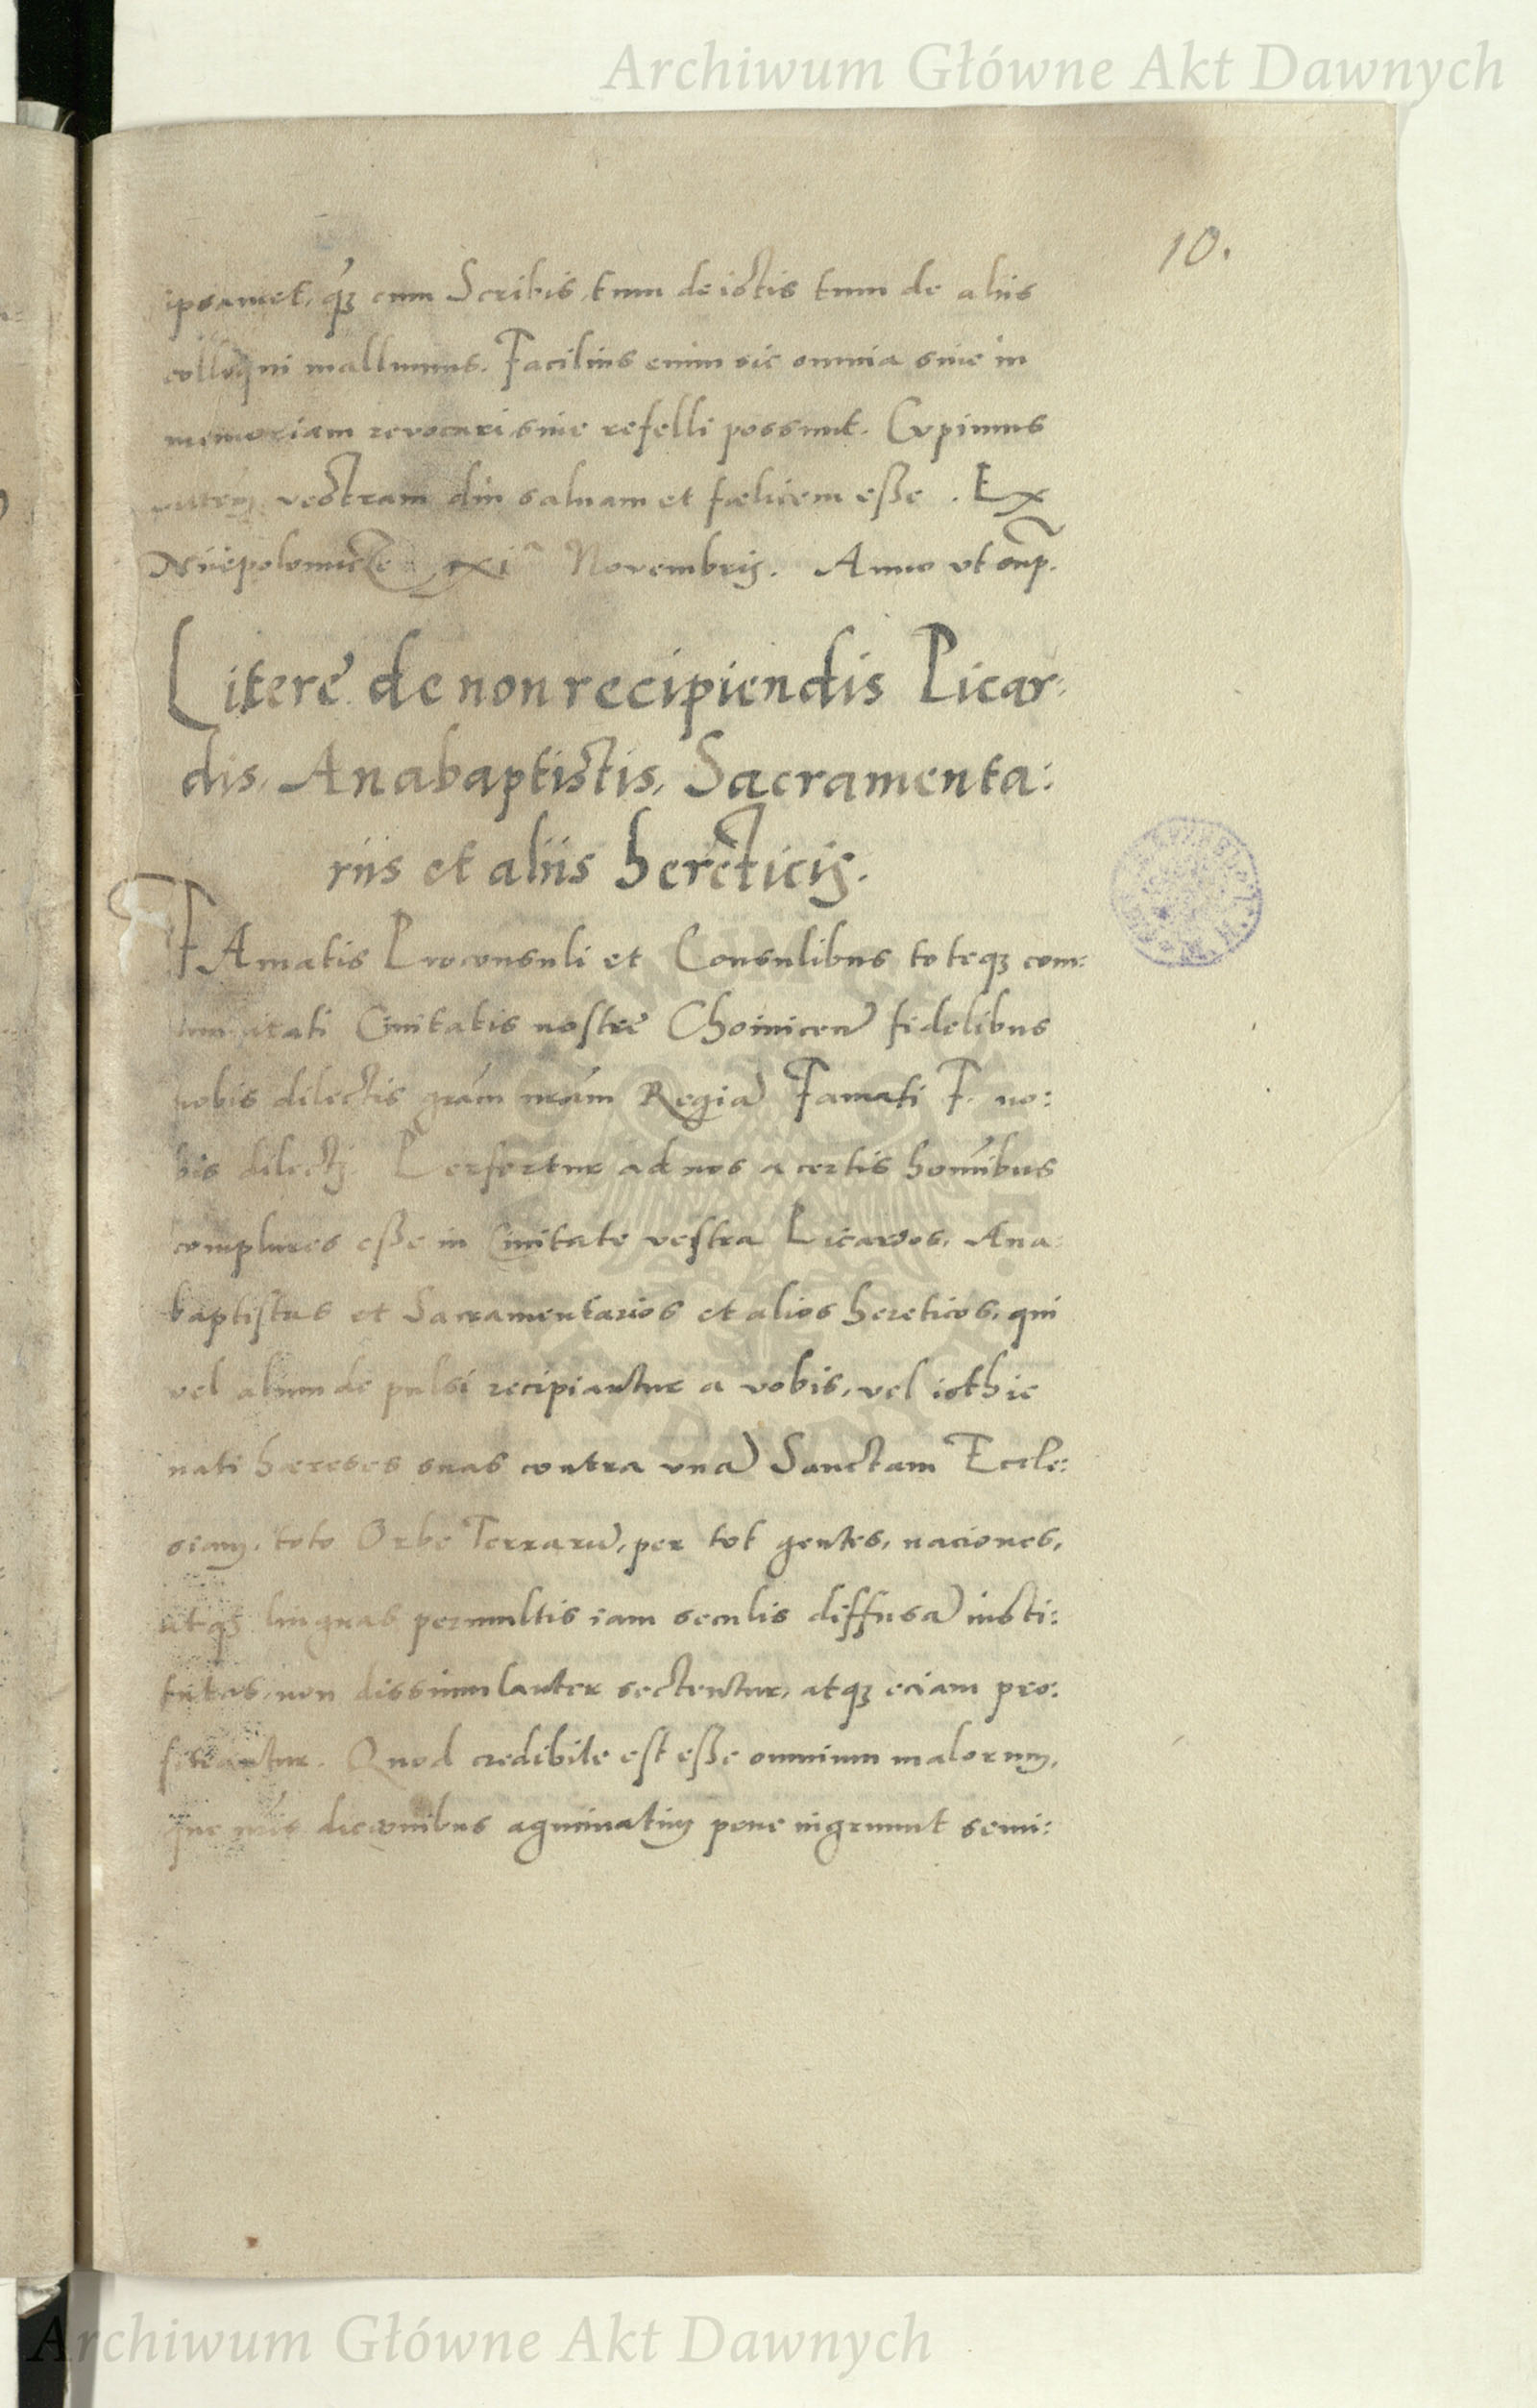 Archiwum Główne Akt Dawnych
10.
ipsamet, qȝ cum Scribis, tum de istis tum de aliis
colloqui mallumus. Facilius enim sic omnia siue in
memoriam revocari siue refelli possunt. Cupimus
vestram diu saluam et fœlicem esse. Ex
Niepolomicze xxi Novembris. Anno ut sup.
Litere de non recipiendis Picar:
dis, Anabaptistis, Sacramenta:
riis et aliis hereticis.
FAmatis Proconsuli et Consulibus toteqȝ com:
munitati Ciuitatis nostre Choinicen fidelibus
nobis dilectis gram nram Regia Famati F. no:
bis dilecti. Perfertur ad nos a certis hominibus
complures esse in Ciuitate vestra Picardos, Ana:
baptistas et Sacramentarios et alios hereticos, qui
vel aliunde pulsi recipiantur a vobis, vel isthic
nati hæreses suas contra una Sanctam Eccle:
siam, toto Orbe Terraru, per tot gentes, naciones,
atqȝ linguas permultis iam seculis diffusa insti:
tutas, non dissimulanter sectentur, atqȝ eciam pro:
fiteantur. Quod credibile est esse omnium malorum,
que nris dicionibus agminatim pene ingruunt semi:
Archiwum Główne Akt Dawnych